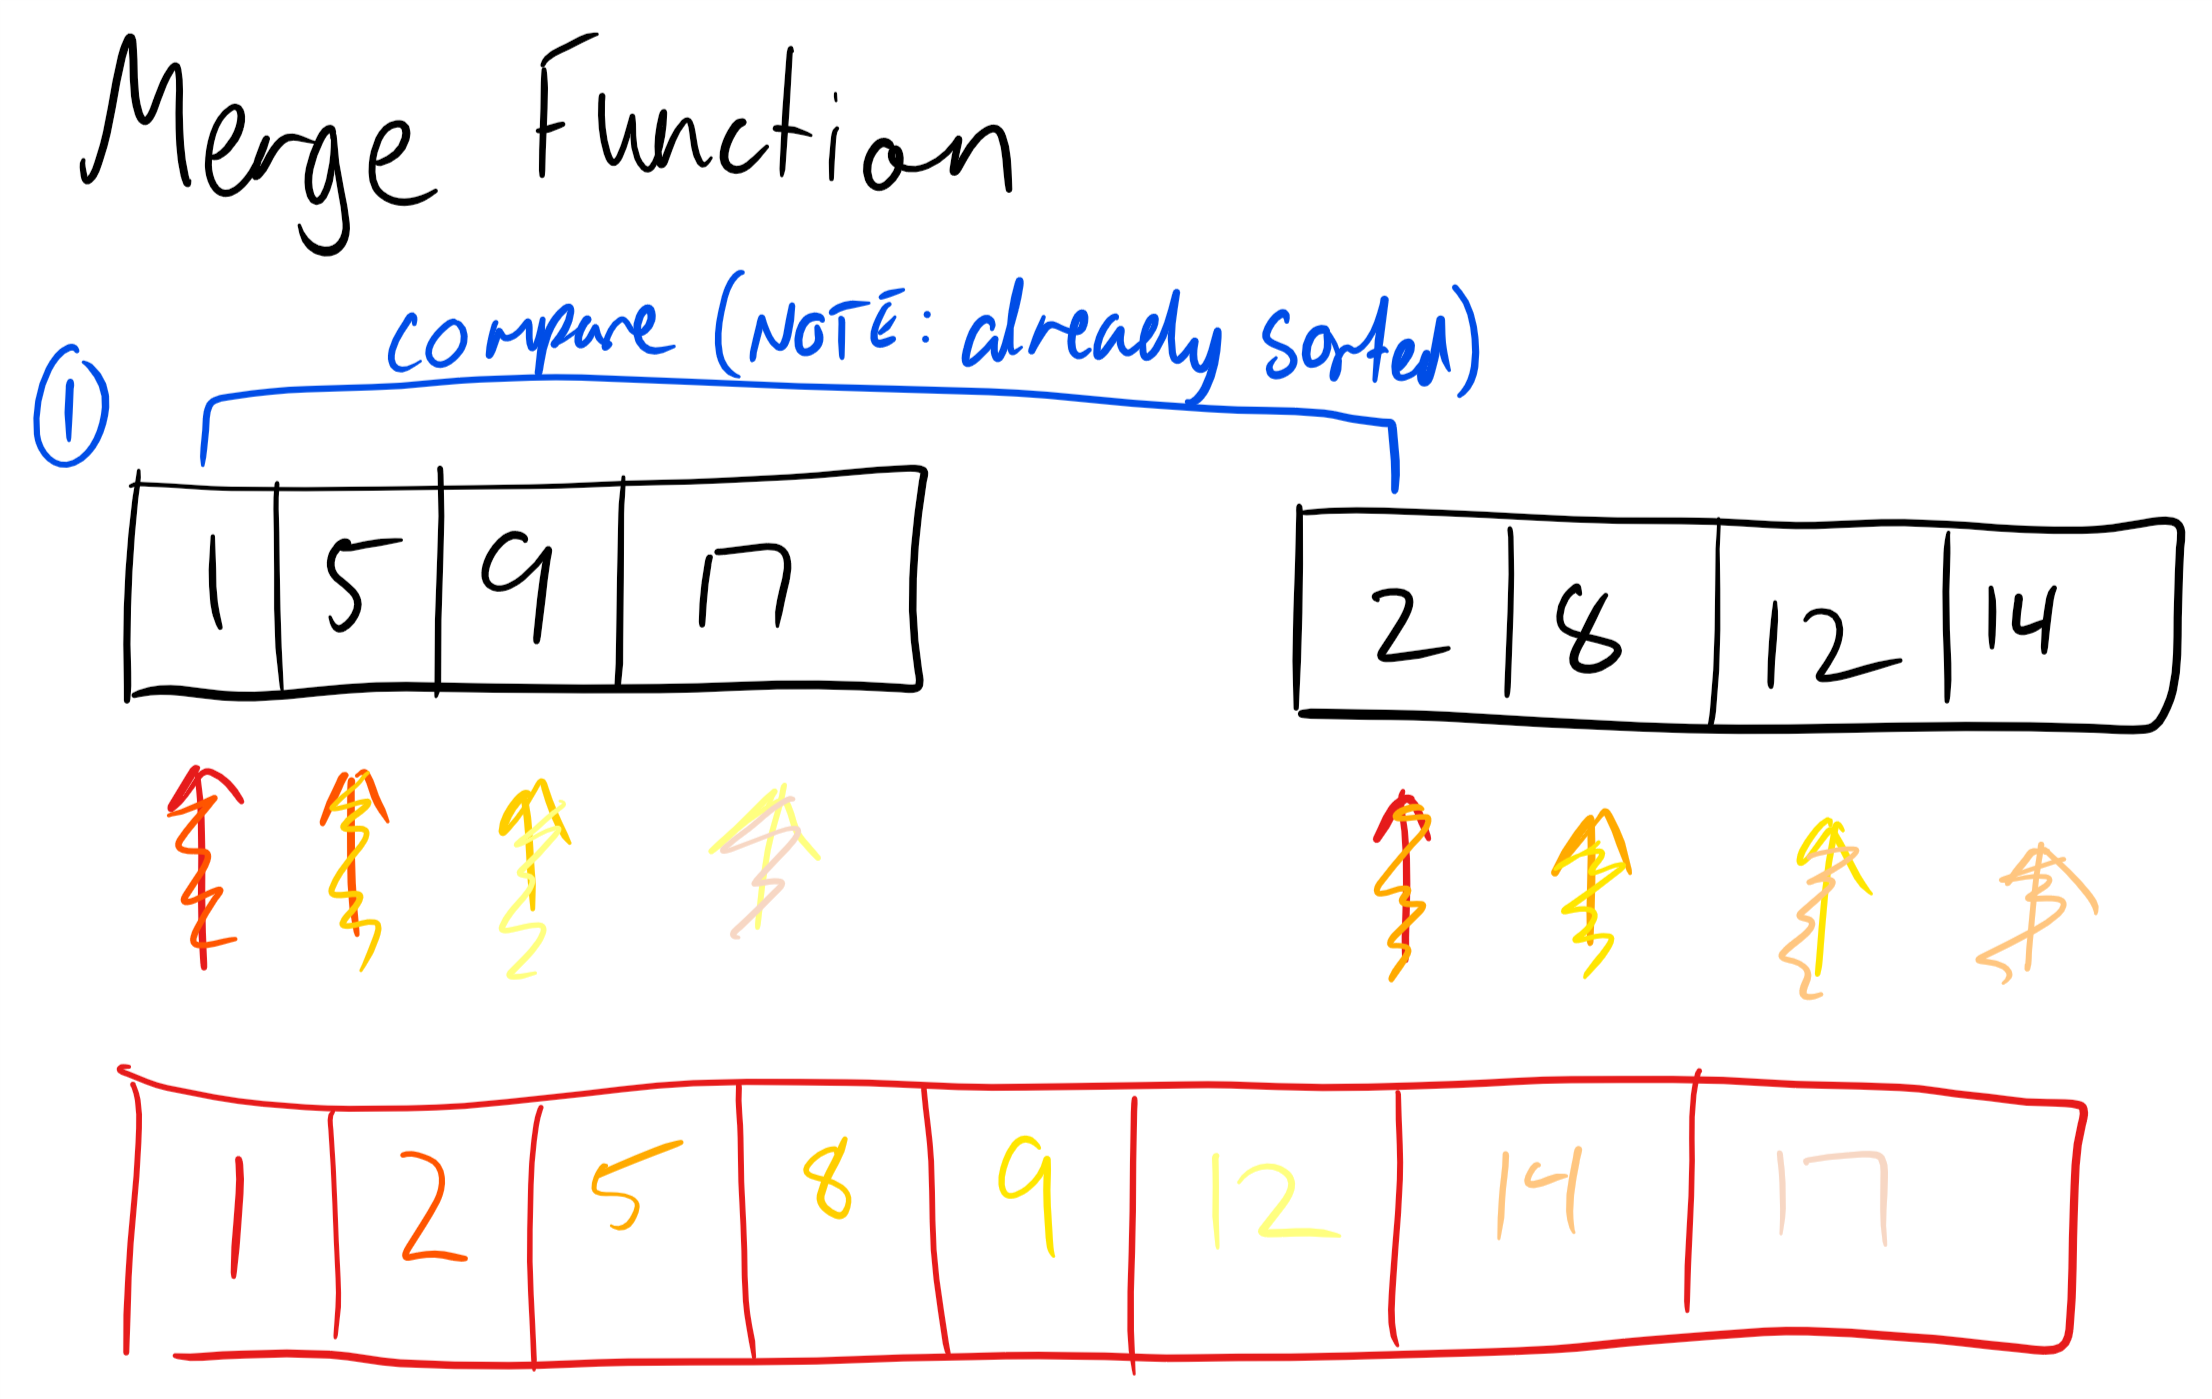 Merge Function
compare (NOTE: already sorted)
1
1 5 9 17
2 8 12 14
1 2 5 8 9 12 14 17